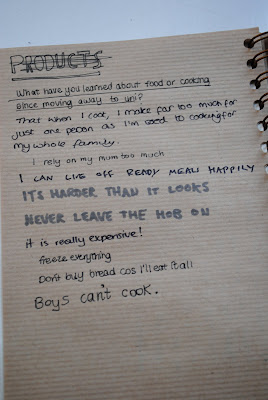 PRODUCTS
What have you learned about food or cooking
since moving away to uni?
That when I cook, I make far too much for
just one person as I'm used to cooking for
my whole family.
I rely on my mum too much
I CAN LIVE OFF READY MEALS HAPPILY
ITS HARDER THAN IT LOOKS
NEVER LEAVE THE HOB ON
it is really expensive!
freeze everything
Dont buy bread cos i'll eat it all
Boys can't cook.